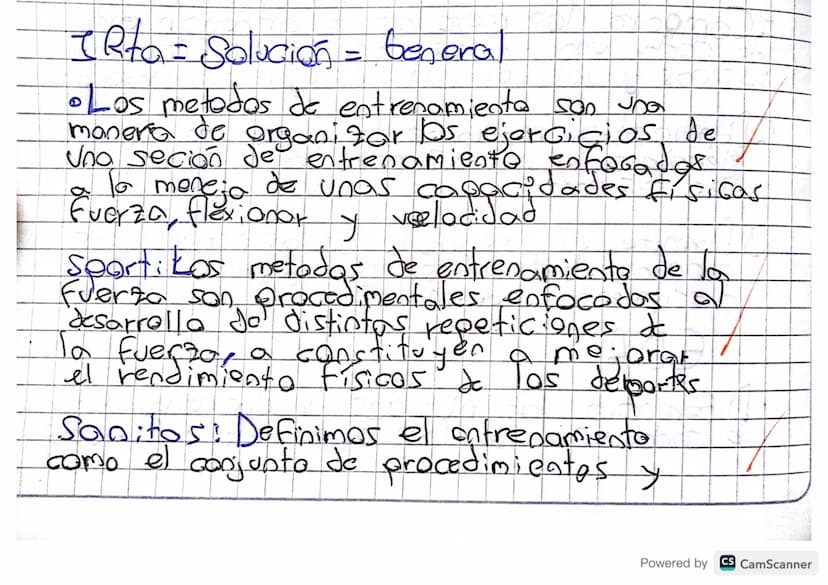 I Rta = Solución = General
• Los metodos de entrenamiento son una
maneria de organizar los ejercicios de
una seción de entrenamiento enfocados
a la meneja de unas capacidades físicas
fuerza, flexionar y velocidad
Sporti: Los metodos de entrenamiento de la
fuerza son procedimentales enfocodos al
desarrollo de distintos repeticiones de
la fuerza, a constituyen a mejorar
el rendimiento físicos de los deportes
Sanitos: Definimos el entrenamiento
como el conjunto de procedimientos y
Powered by CS CamScanner